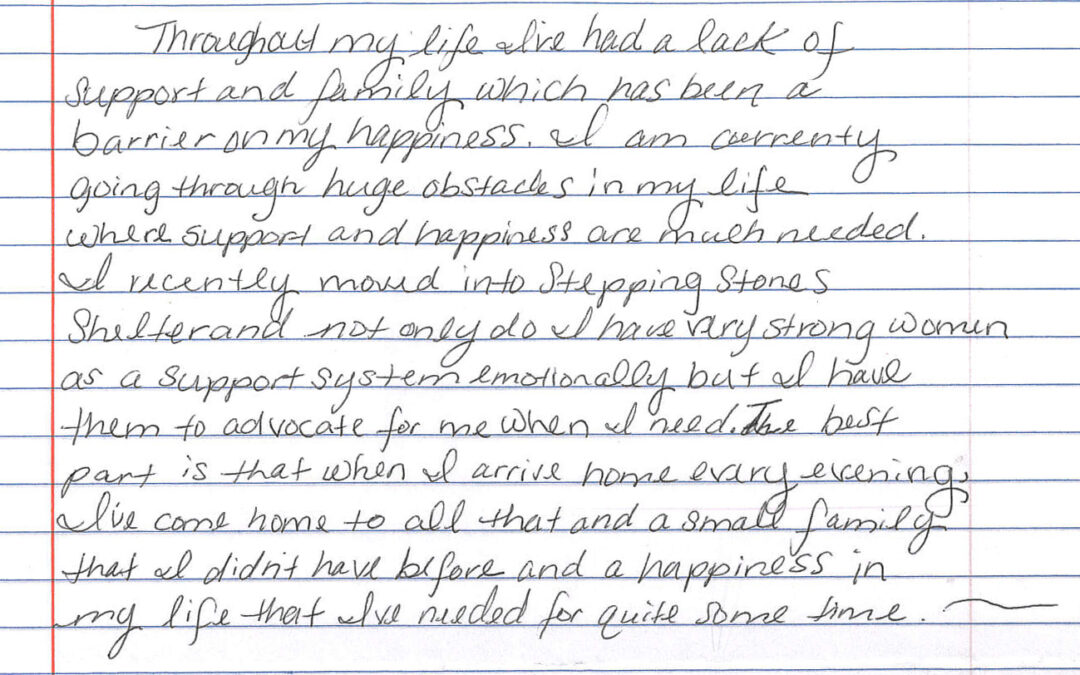 Throughout my life I've had a lack of
support and family which has been a
barrier on my happiness. I am currenty
going through huge obstacles in my life
where support and happiness are much needed.
I recently moved into Stepping Stones
Shelter and not only do I have very strong women
as a support system emotionally but I have
them to advocate for me when I need. The best
part is that when I arrive home every evening,
I've come home to all that and a small family
that I didn't have before and a happiness in
my life that I've needed for quite some time.